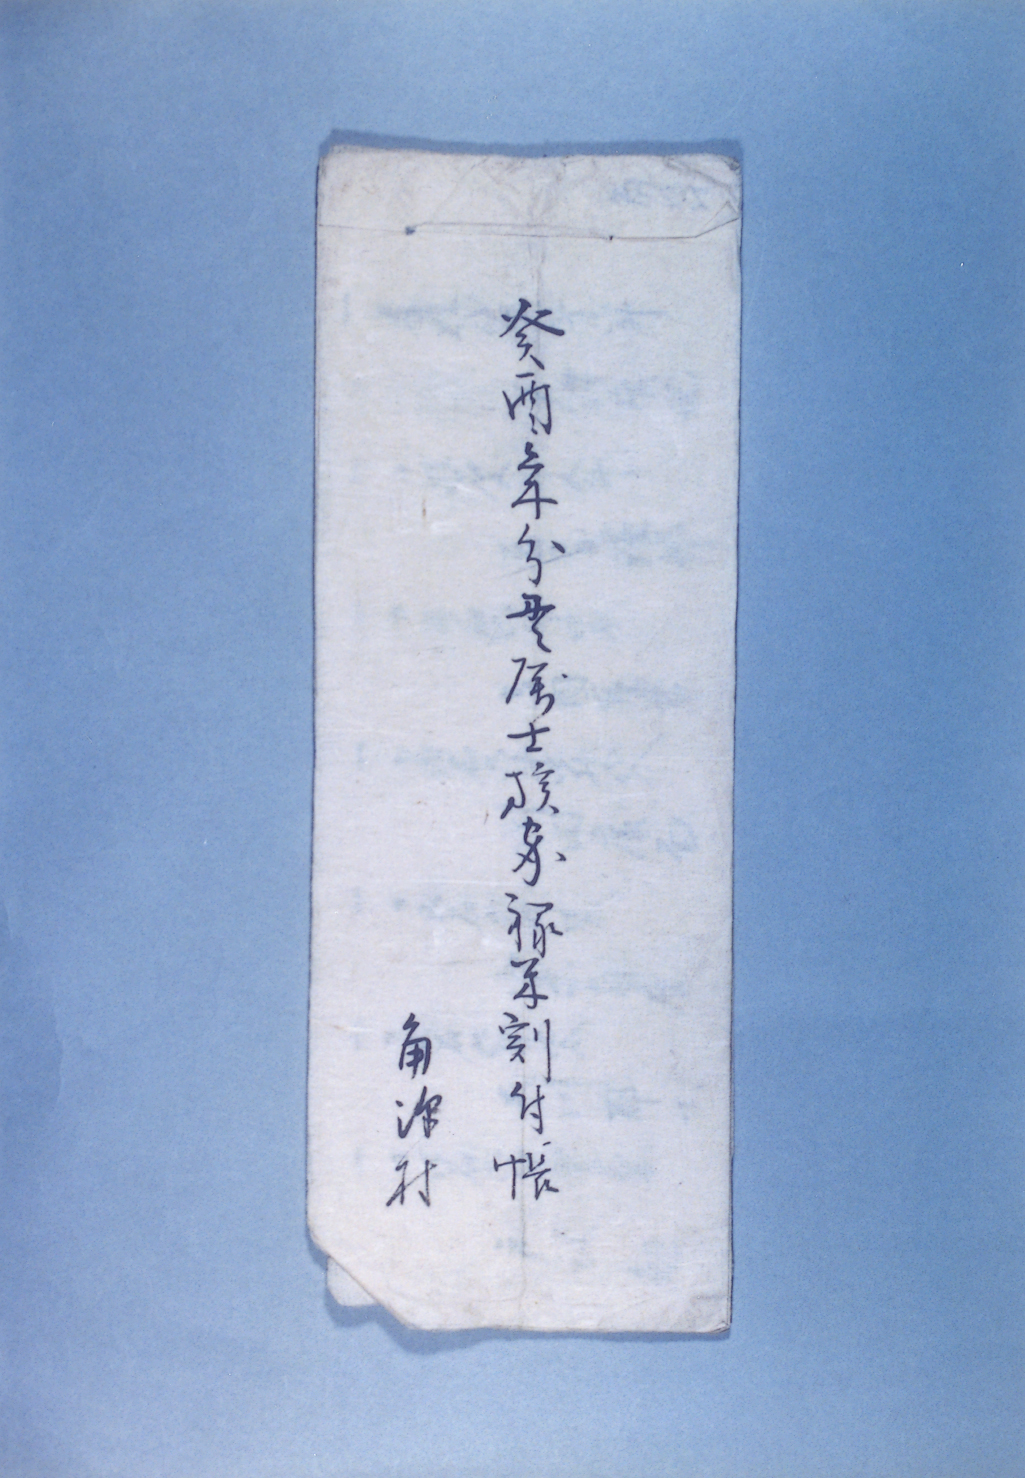 癸酉年分貫属士族家禄米割付帳
角深村